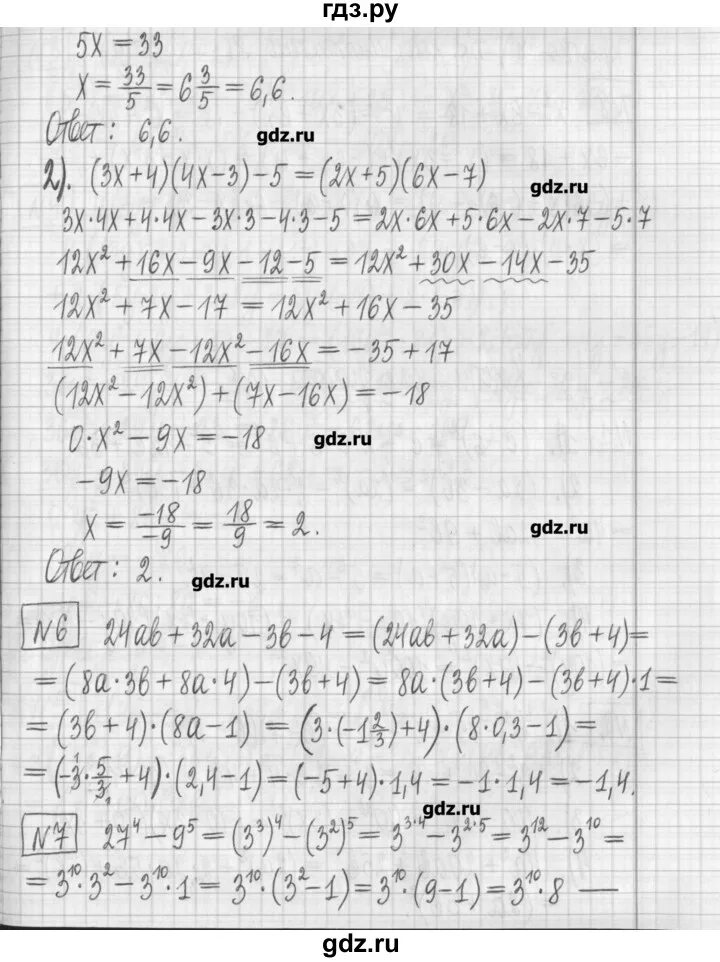 гдз.ру
5x = 33
x = 33/5 = 6 3/5 = 6,6.
Ответ: 6,6.
gdz.ru
2). (3x+4)(4x−3)−5 = (2x+5)(6x−7)
gdz.ru
3x·4x+4·4x−3x·3−4·3−5 = 2x·6x+5·6x−2x·7−5·7
12x²+16x−9x−12−5 = 12x²+30x−14x−35
12x²+7x−17 = 12x²+16x−35
12x²+7x−12x²−16x = −35+17
(12x²−12x²)+(7x−16x) = −18
0·x²−9x = −18
gdz.ru
−9x = −18
x = −18/−9 = 18/9 = 2.
gdz.ru
Ответ: 2.
gdz.ru
№6 24ab+32a−3b−4 = (24ab+32a)−(3b+4)=
=(8a·3b+8a·4)−(3b+4) = 8a·(3b+4)−(3b+4)·1=
=(3b+4)·(8a−1) = (3·(−1 2/3)+4)·(8·0,3−1)=
=(−3·5/3+4)·(2,4−1)=(−5+4)·1,4=−1·1,4=−1,4.
gdz.ru
№7 27⁴−9⁵=(3³)⁴−(3²)⁵=3³·⁴−3²·⁵=3¹²−3¹⁰=
=3¹⁰·3²−3¹⁰·1=3¹⁰·(3²−1)=3¹⁰·(9−1)=3¹⁰·8 —
gdz.ru